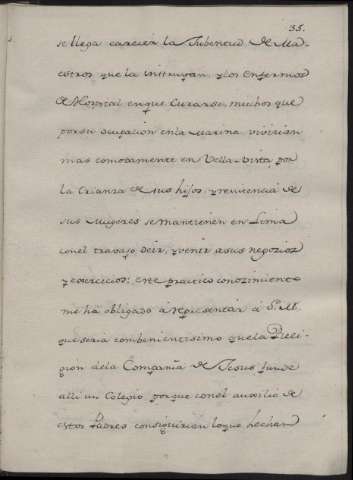 35.
se llega carecer la Jubentud de Ma-
estros que la instruyan, y los Enfermos
de Hospital en que Curarse, muchos que
por su ocupacion en la Marina vivirian
mas comodamente en Bella-vista por
la Crianza de sus hijos, y residencia de
sus Mugeres se mantienen en Lima
con el travajo de ir, y venir a sus negozios
y exercicios: este practico conozimiento
me há obligado á representar á S. M.
que seria combenientisimo que la Reli-
gion de la Compañia de Jesus funde
alli un Colegio, porque con el auxilio de
estos Padres consiguirian lo que hechan